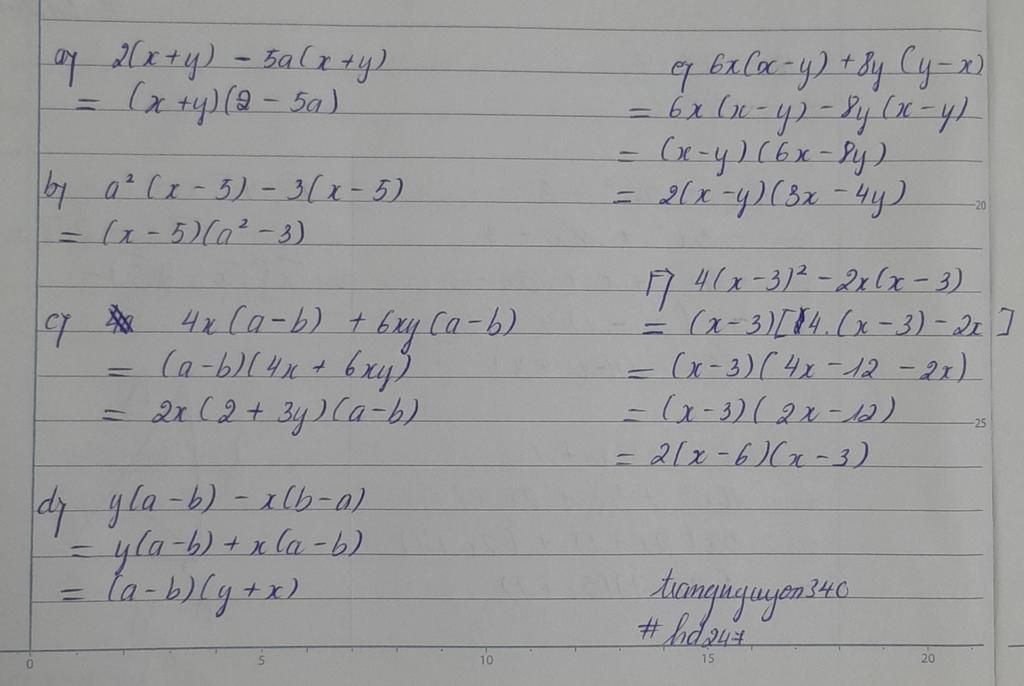 a) 2(x+y) - 5a(x+y)
= (x+y)(2 - 5a)
b) a² (x - 5) - 3(x - 5)
= (x - 5)(a² - 3)
c) 4x(a-b) + 6xy(a-b)
= (a-b)(4x + 6xy)
= 2x(2 + 3y)(a-b)
d) y(a-b) - x(b-a)
= y(a-b) + x(a-b)
= (a-b)(y+x)
e) 6x(x-y) + 8y(y-x)
= 6x(x-y) - 8y(x-y)
= (x-y)(6x-8y)
= 2(x-y)(3x-4y)
f) 4(x-3)² - 2x(x-3)
= (x-3)[4.(x-3) - 2x]
= (x-3)(4x-12-2x)
= (x-3)(2x-12)
= 2(x-6)(x-3)
trangnguyen340
#hd247
20
25
0 5 10 15 20